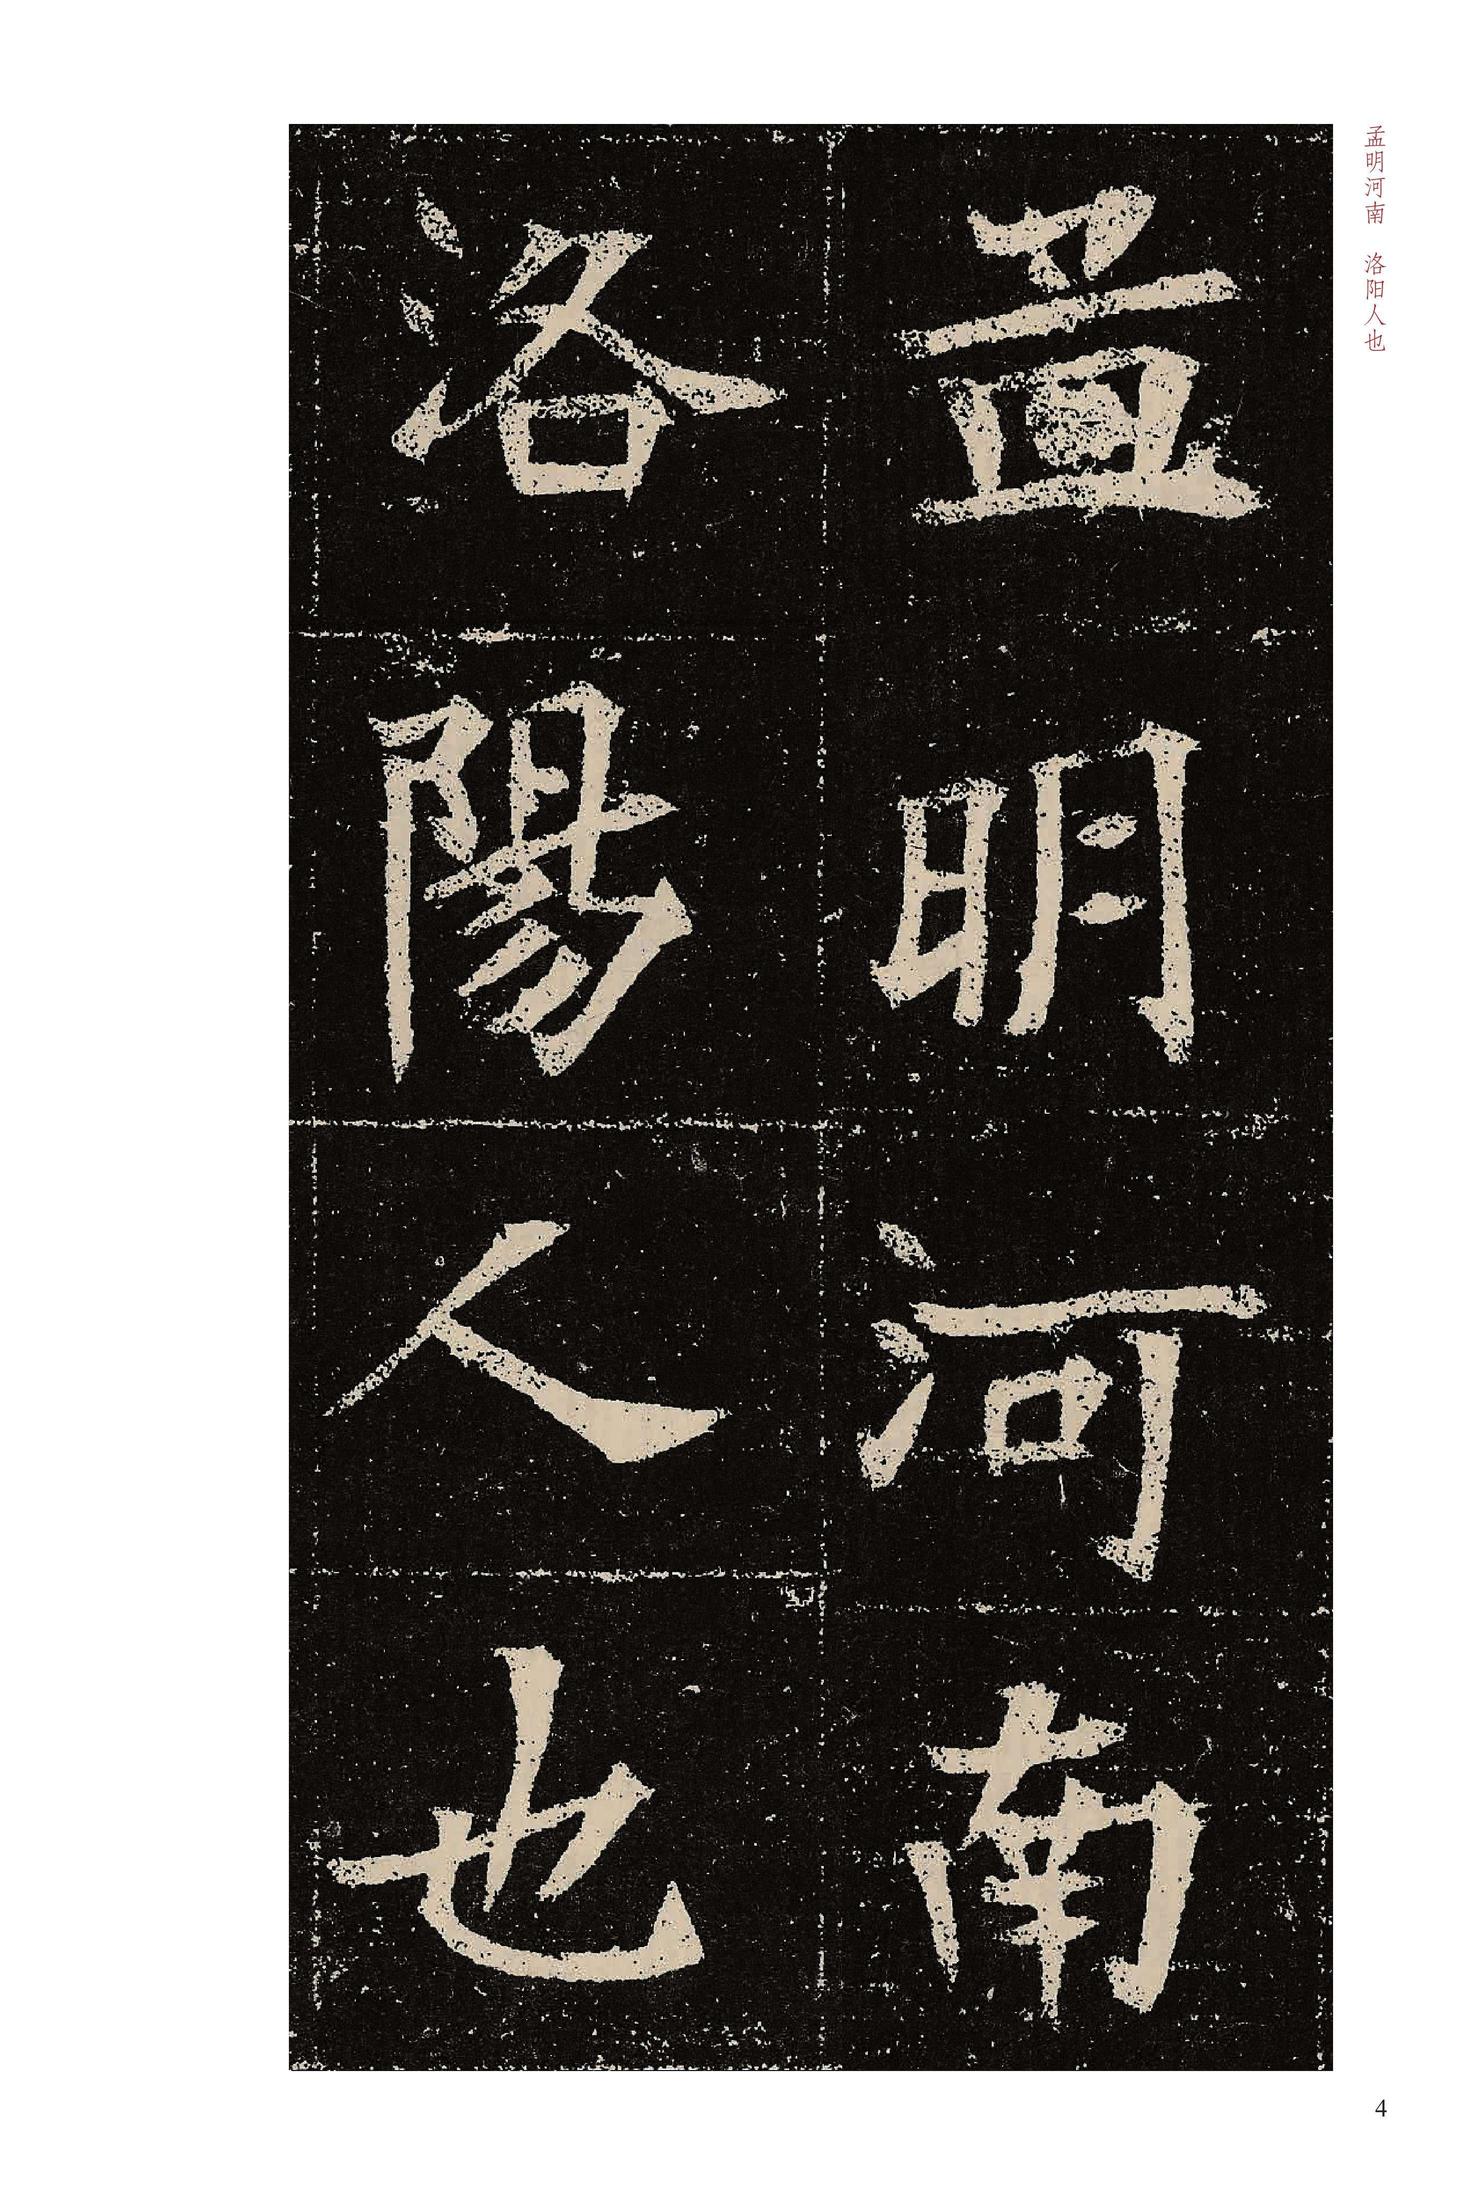 孟明河南　洛阳人也
孟明河南
洛陽人也
4